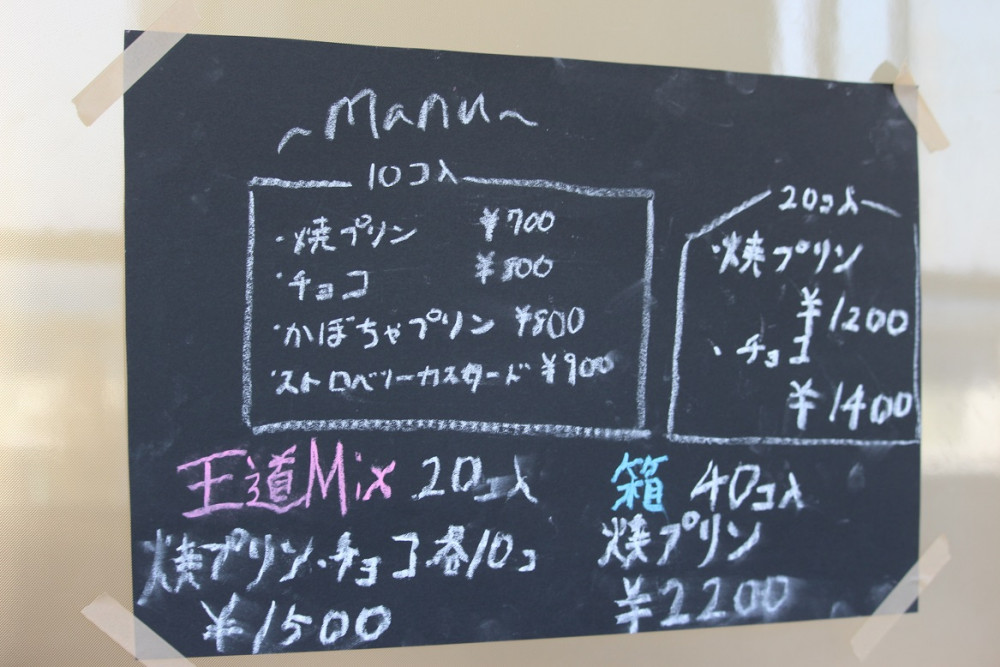 ~Manu~
10コ入
・焼プリン ¥700
・チョコ ¥800
・かぼちゃプリン ¥800
・ストロベリーカスタード ¥900
20コ入
・焼プリン
¥1200
・チョコ
¥1400
王道Mix 20コ入
焼プリン・チョコ各10コ
¥1500
箱 40コ入
焼プリン
¥2200